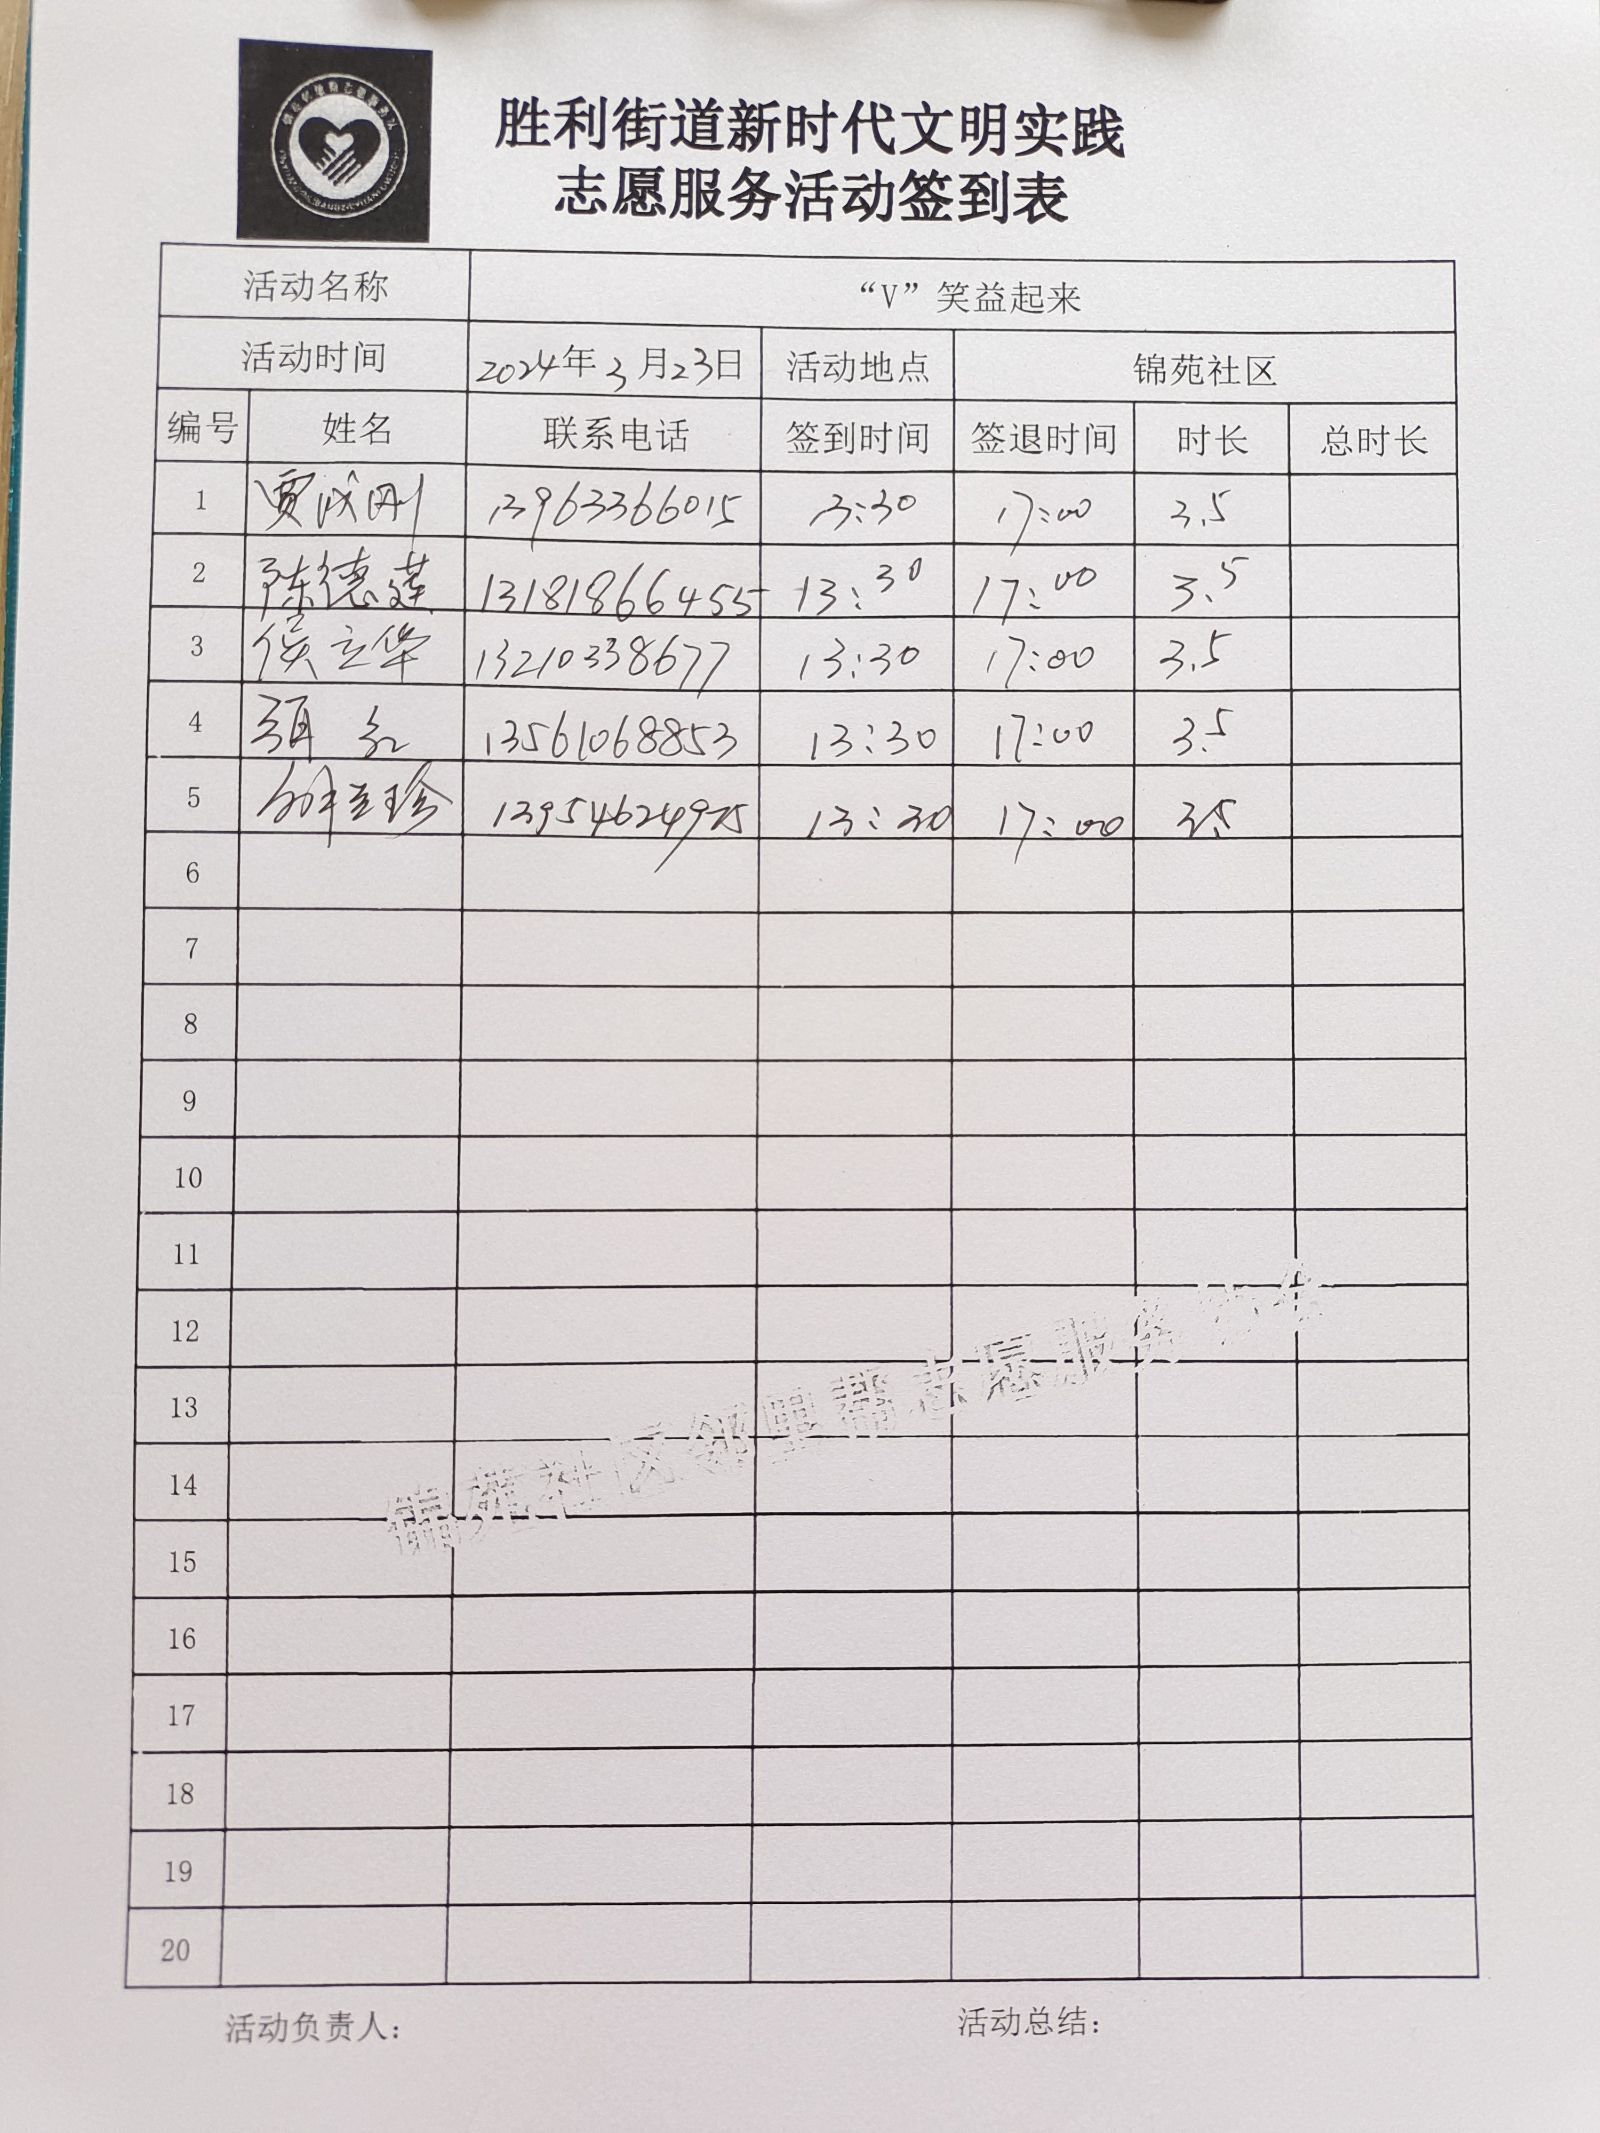 胜利街道新时代文明实践
志愿服务活动签到表
活动名称 “V”笑益起来
活动时间 2024年3月23日 活动地点 锦苑社区
编号 姓名 联系电话 签到时间 签退时间 时长 总时长
1 贾成刚 13963366015 13:30 17:00 3.5
2 陈德莲 13181866455 13:30 17:00 3.5
3 侯立华 13210338677 13:30 17:00 3.5
4 红 13561068853 13:30 17:00 3.5
5 珍 13954624975 13:30 17:00 3.5
6
7
8
9
10
11
12
13
14
15
16
17
18
19
20
锦苑社区邻里帮志愿服务协会
活动负责人：
活动总结：